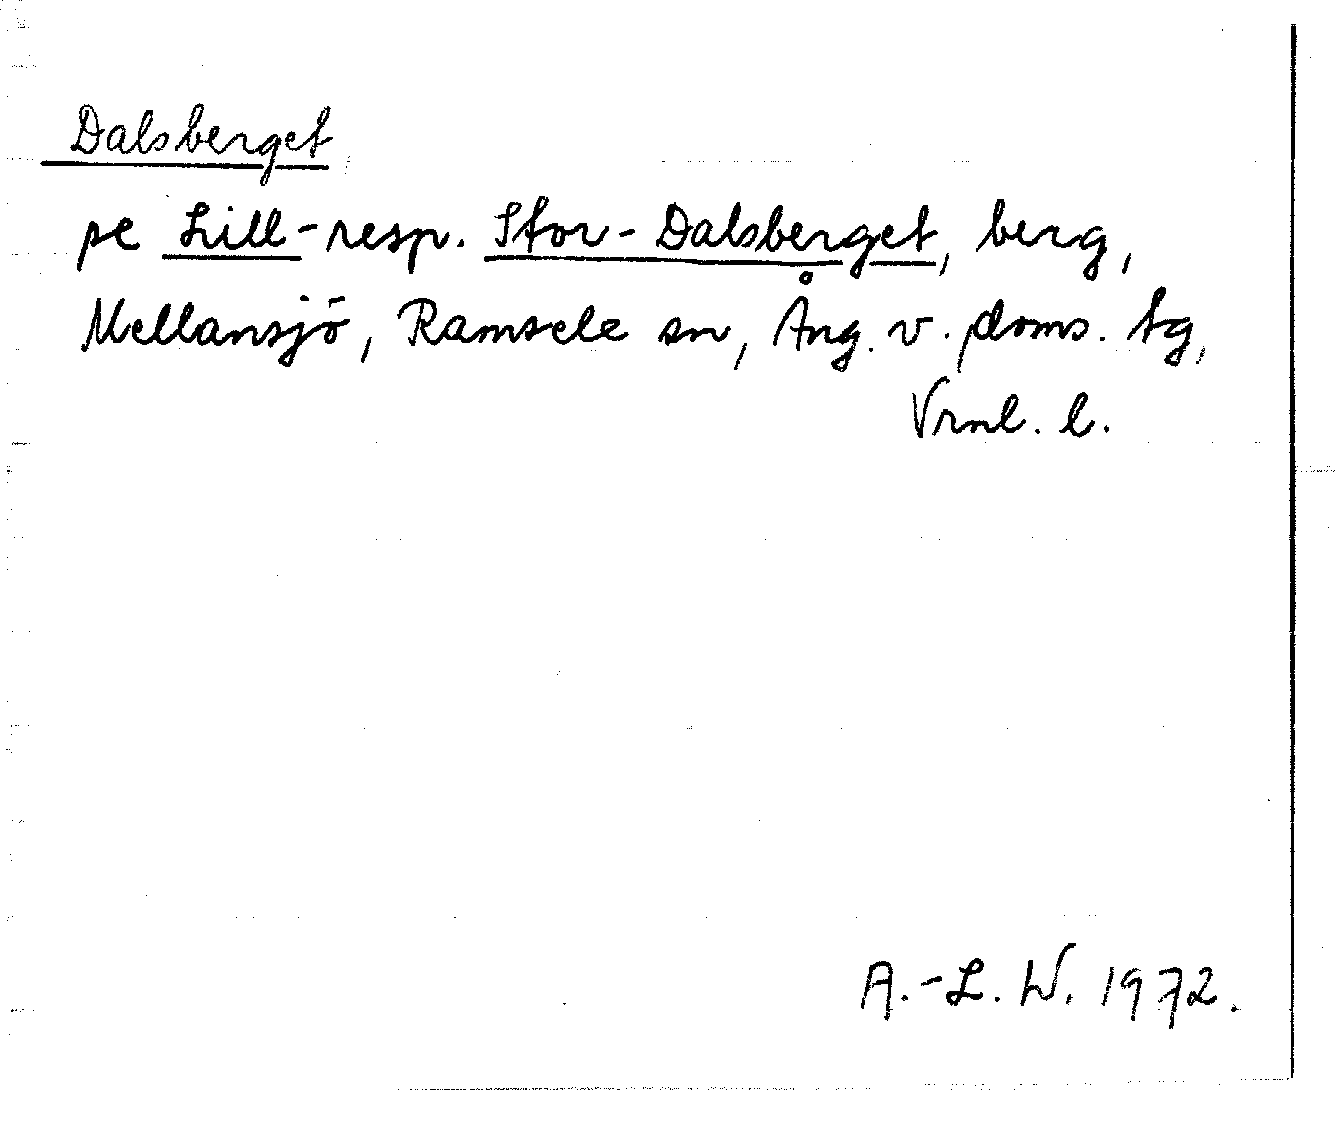 Dalsberget
se Lill- resp. Stor-Dalsberget, berg,
Mellansjö, Ramsele sn, Ång. v. doms. tg,
Vrnl. l.
A.-L. W. 1972.